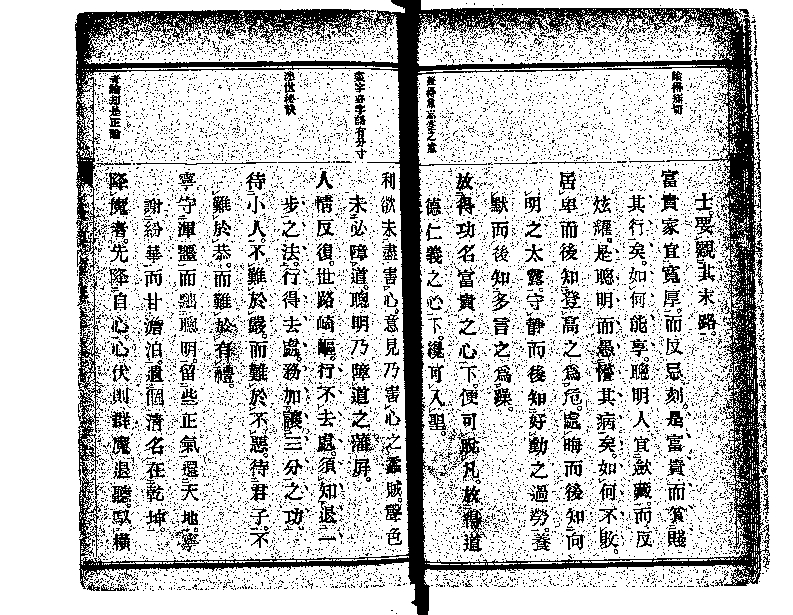 士要觀其末路
富貴家宜寬厚。而反忌刻是富貴而貧賤
其行矣。如何能享。聰明人宜斂藏而反
炫耀。是聰明而愚懵其病矣。如何不敗。
居卑而後知登高之爲危。處晦而後知向
明之太露。守靜而後知好動之過勞。養
默而後知多言之爲躁。
放得功名富貴之心下。便可脫凡。放得道
德仁義之心下。纔可入聖。
利欲未盡害心。意見乃害心之蟊賊。聲色
未必障道。聰明乃障道之藩屏。
人情反復。世路崎嶇。行不去處。須知退一
步之法。行得去處。務加讓三分之功。
待小人不難於嚴。而難於不惡。待君子。不
難於恭。而難於有禮。
寧守渾噩而黜聰明留些正氣還天地。寧
謝紛華而甘澹泊遺個清名在乾坤。
降魔者。先降自心。心伏則群魔退聽。馭橫